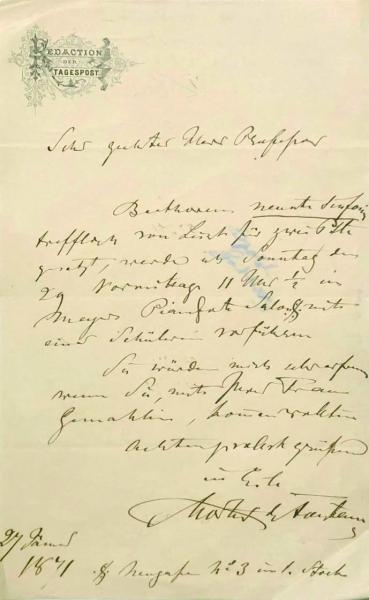 REDACTION
DER
TAGESPOST
Sehr geehrter Herr Professor
Beethovens neunte Sinfonie
trefflich von Liszt für zwei Pfte
gesetzt, werde ich Sonntag den
29 Vormittags 11 Uhr ½ in
Meyers Pianoforte Salon mit
einer Schülerin vorführen
Sie würden mich sehr erfreuen
wenn Sie, mit Ihrer Frau
Gemahlin, kommen wollten
Achtungsvollst grüßend
in Eile
27 Jänner
1871
Neugasse No 3 im 1. Stock